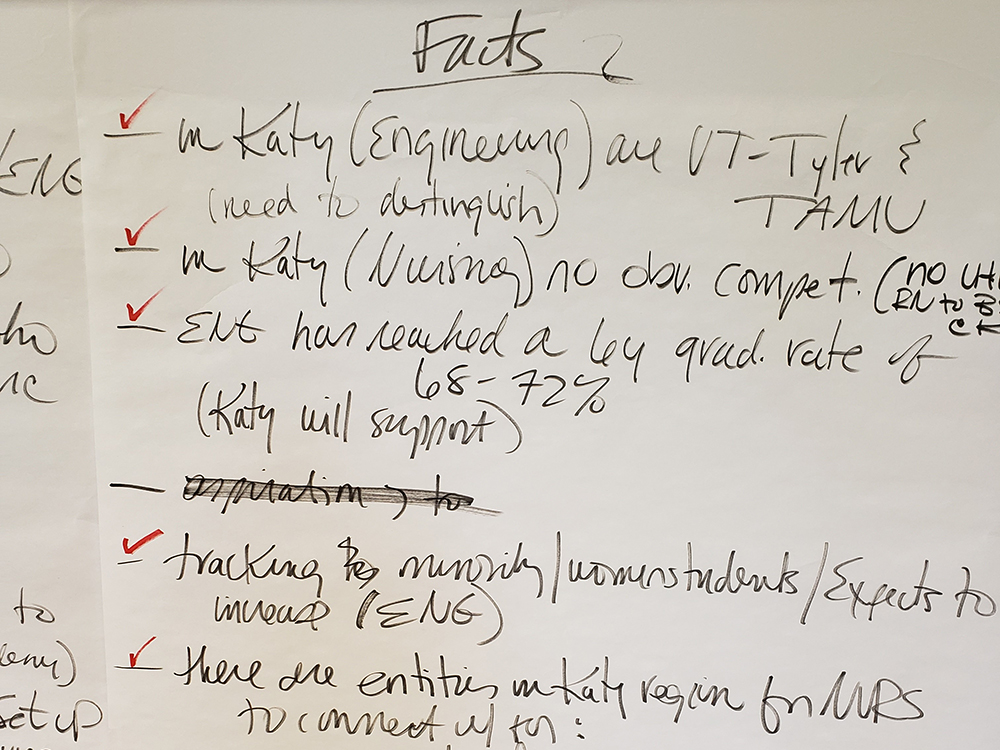 Facts 2
in Katy (Engineering) are UT-Tyler &
(need to destinguish) TAMU
in Katy (Nursing) no obv. compet. (no UH
RN to B
CK
ENG has reached a 6y grad. rate of
68-72%
(Katy will support)
tracking minority/women students/Expects to
increase (ENG)
there are entities in Katy region for NURS
to connect w/ for:
ENG
to
set up